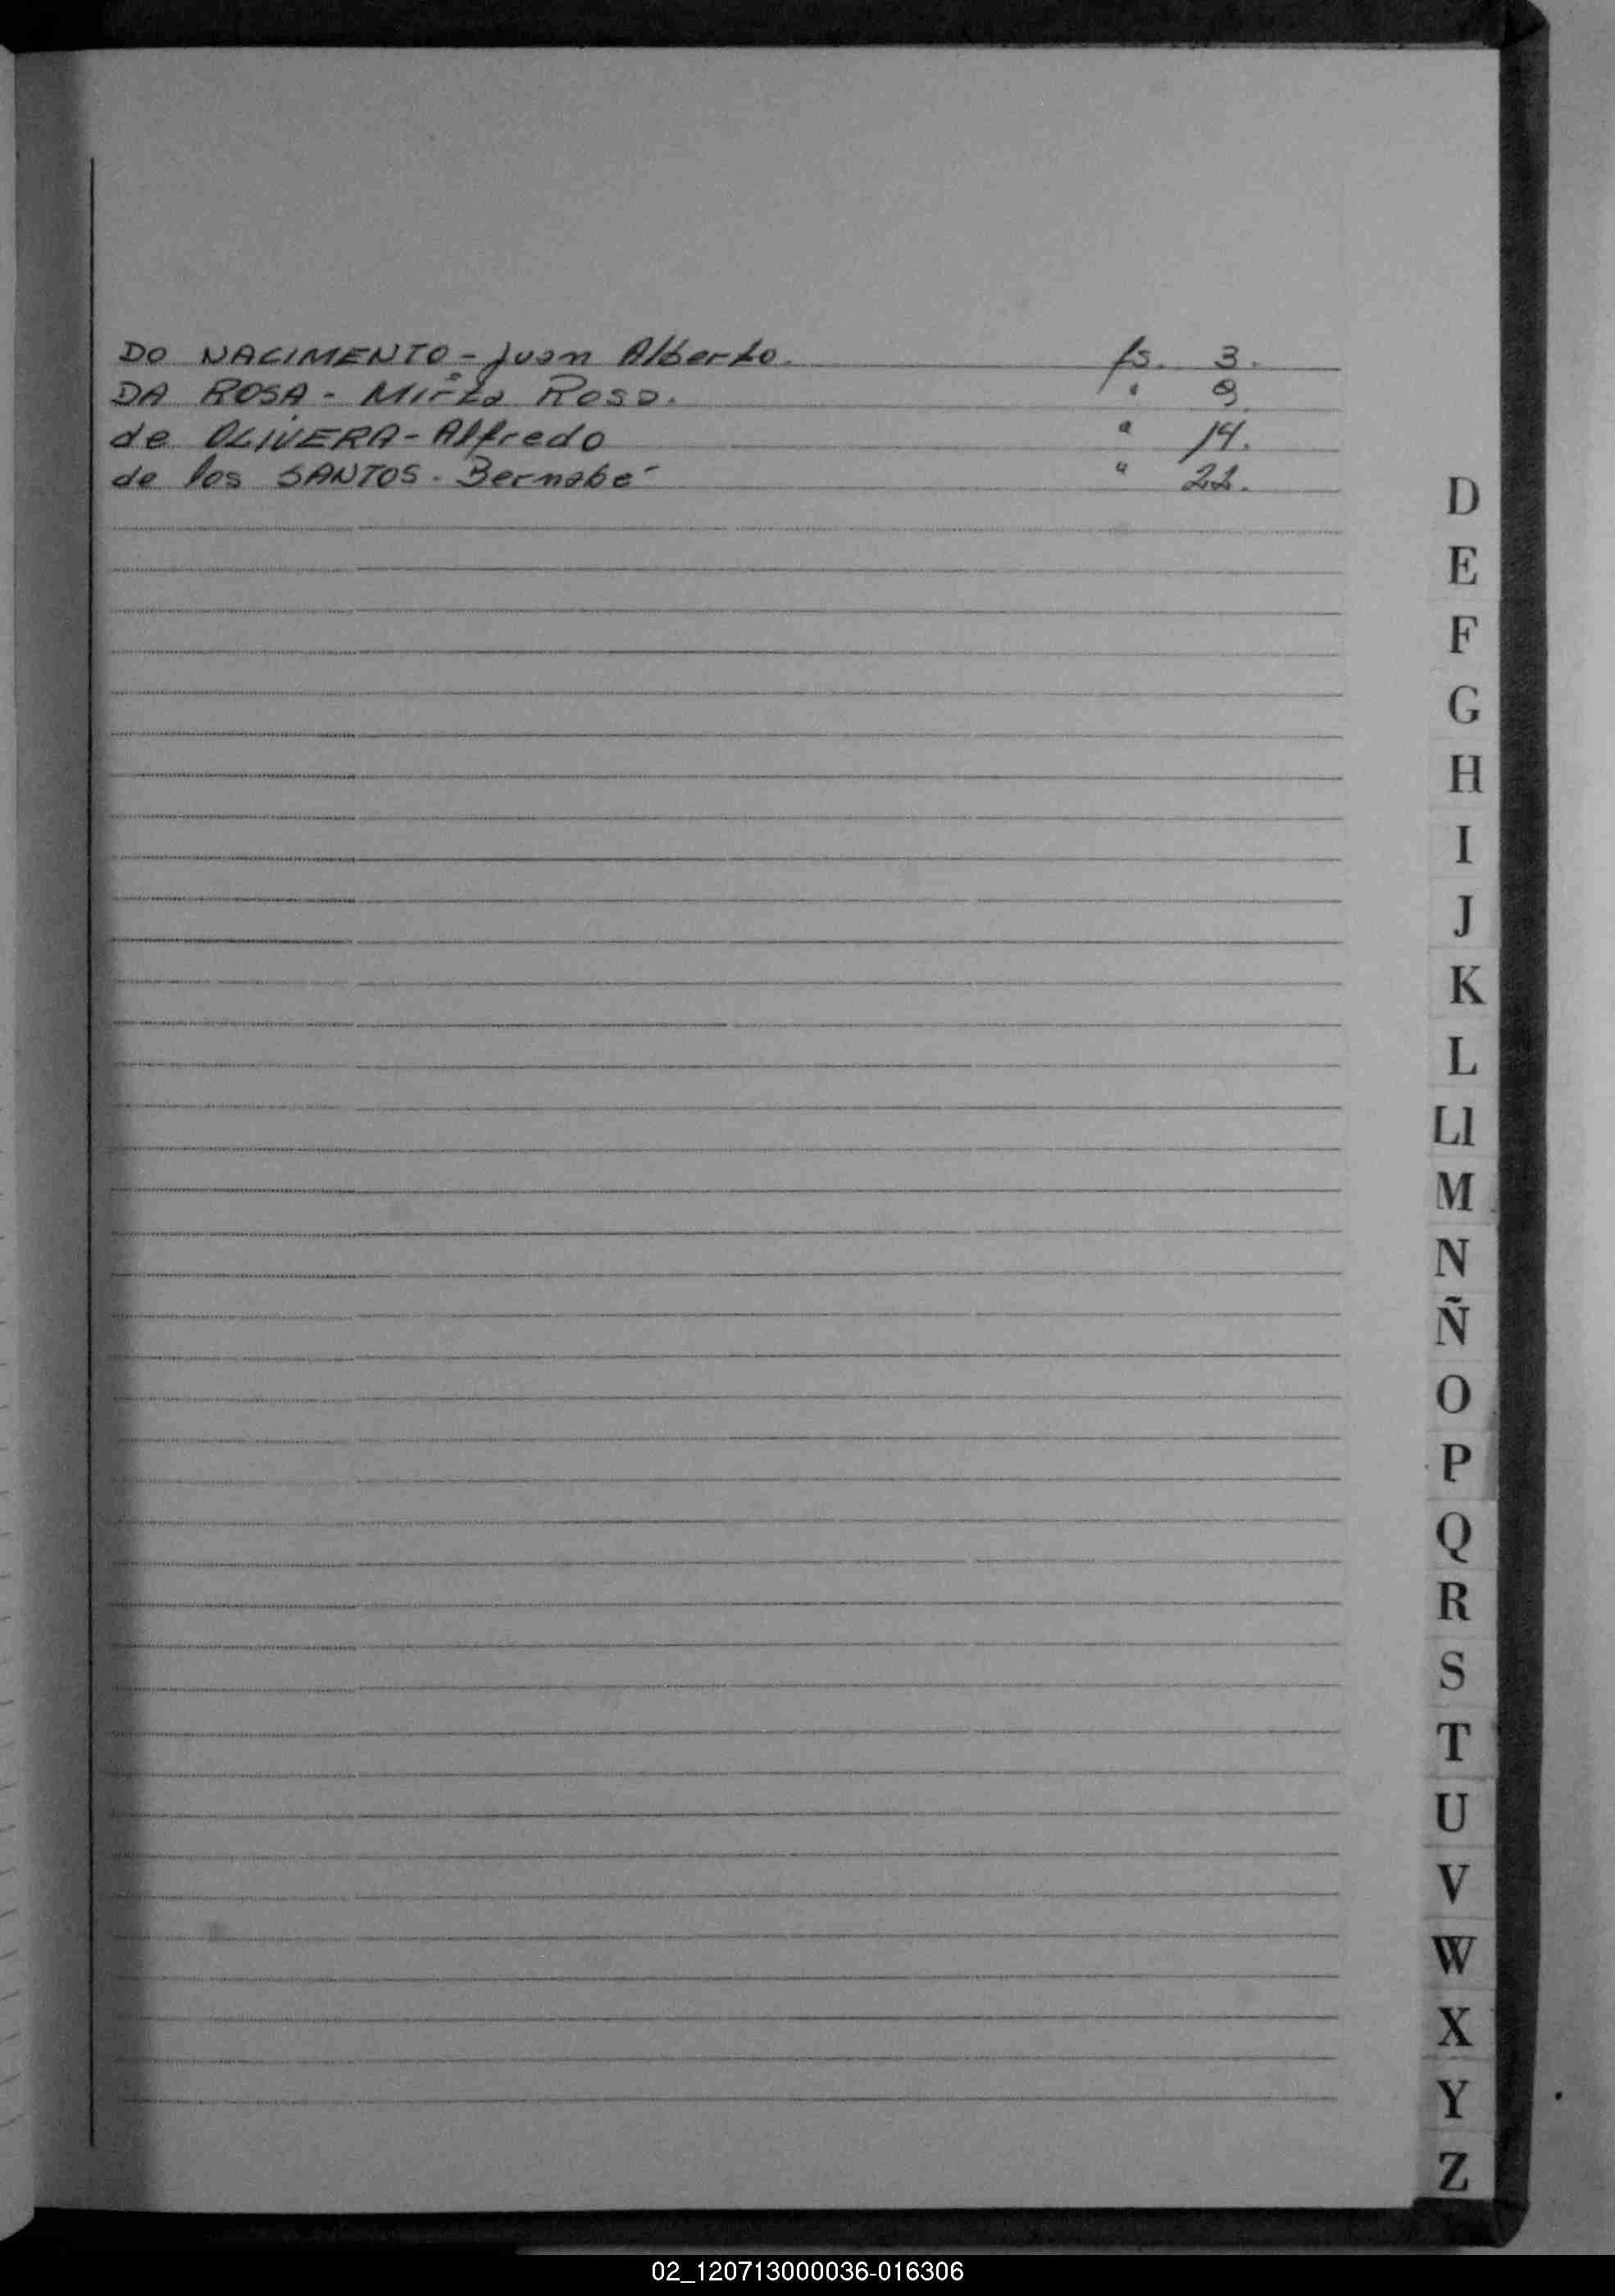 DO NACIMENTO - Juan Alberto. fs. 3.
DA ROSA - Mirta Rosa. " 9
de OLIVERA - Alfredo " 14.
de los SANTOS - Bernabé " 22.
D
E
F
G
H
I
J
K
L
Ll
M
N
Ñ
O
P
Q
R
S
T
U
V
W
X
Y
Z
02_120713000036-016306